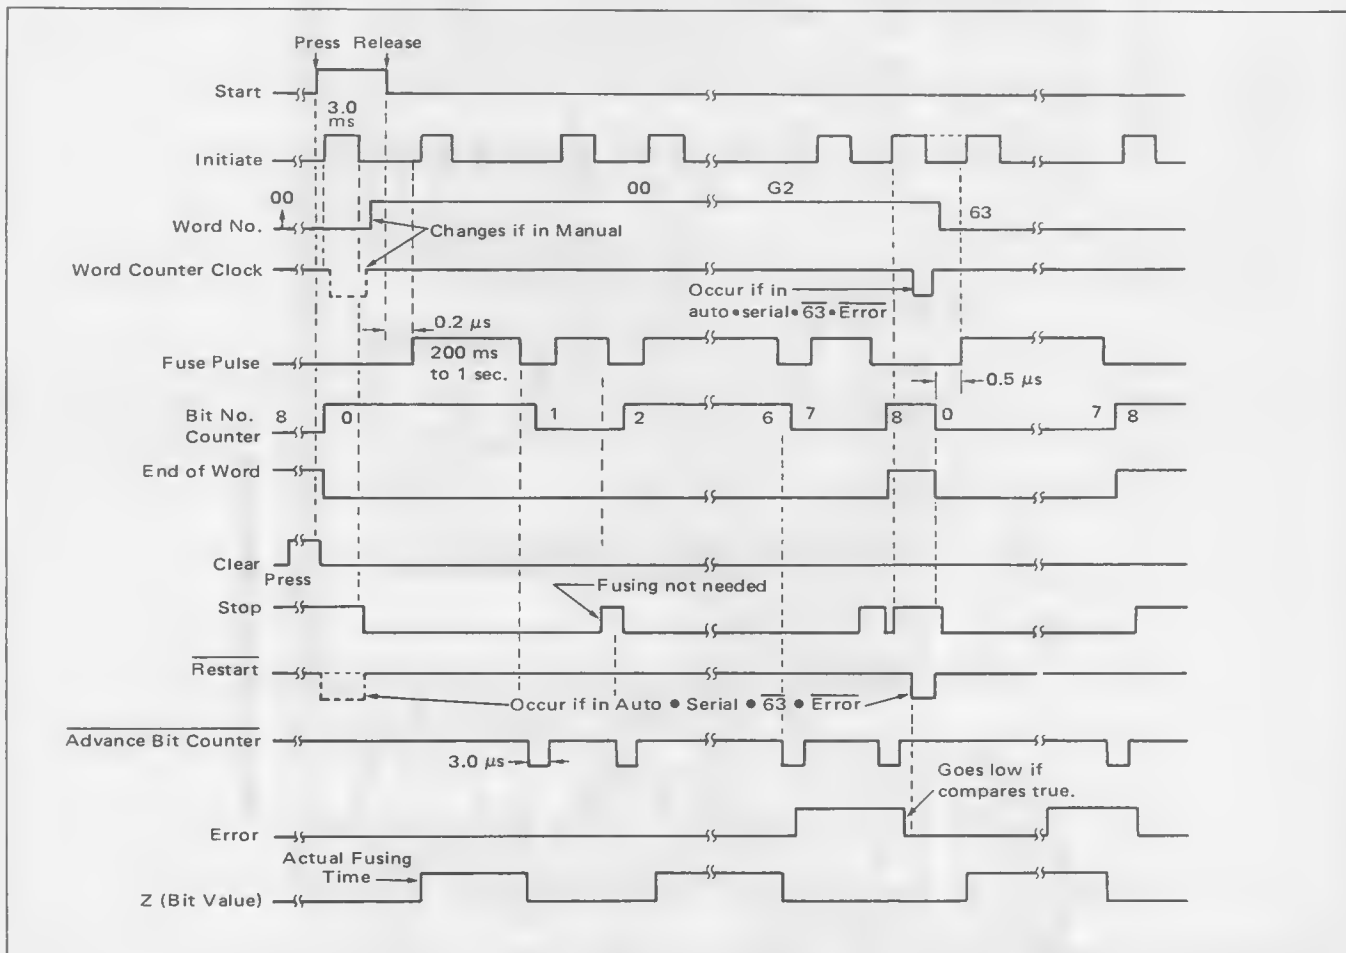 Press Release
Start
3.0
ms
Initiate
00 G2
00
Word No.
63
Changes if in Manual
Word Counter Clock
Occur if in
auto•serial•6̅3̅•E̅r̅r̅o̅r̅
0.2 μs
Fuse Pulse
200 ms
to 1 sec.
0.5 μs
Bit No.
Counter
8 0 1 2 6 7 8 0 7 8
End of Word
Clear
Press
Fusing not needed
Stop
R̅e̅s̅t̅a̅r̅t̅
Occur if in Auto • Serial • 6̅3̅ • E̅r̅r̅o̅r̅
A̅d̅v̅a̅n̅c̅e̅ ̅B̅i̅t̅ ̅C̅o̅u̅n̅t̅e̅r̅
3.0 μs
Goes low if
compares true.
Error
Actual Fusing
Time
Z (Bit Value)